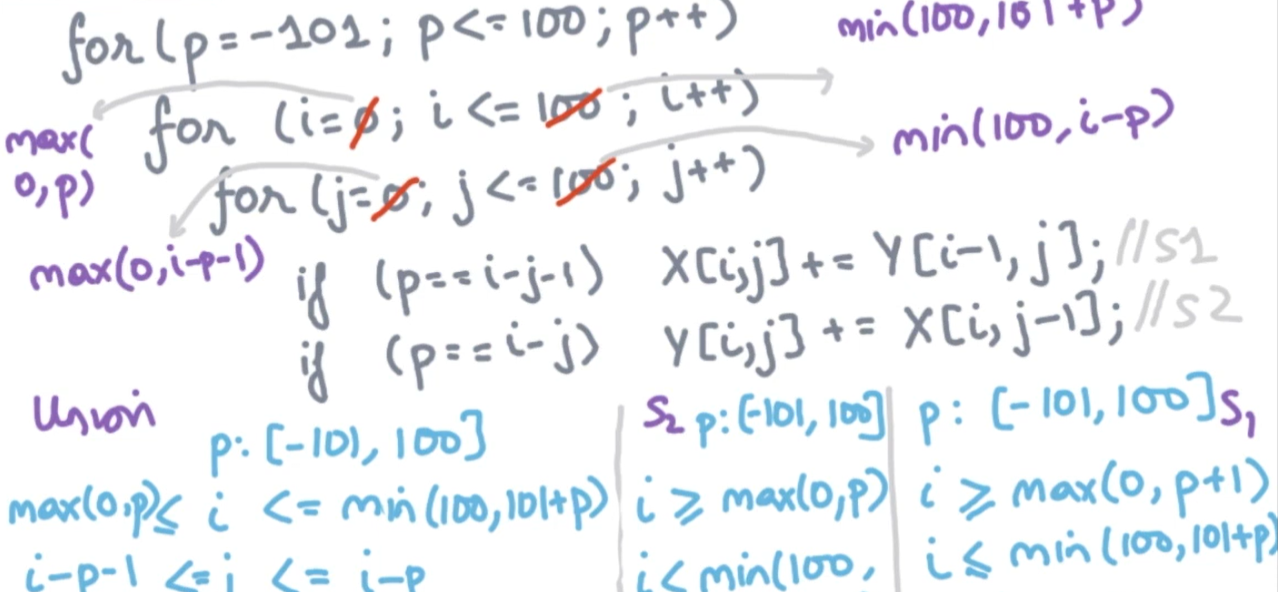 for (p=-101; p<=100; p++)
min(100,101+p)
for (i=0; i<=100; i++)
max(
0,p)
min(100,i-p)
for (j=0; j<=100; j++)
max(0,i-p-1)
if (p==i-j-1) X[i,j]+=Y[i-1,j]; //S1
if (p==i-j) Y[i,j] += X[i,j-1]; //S2
Union
p: [-101, 100]
max(0,p)≤ i <= min(100,101+p)
i-p-1 <=j <= i-p
S2 p:[-101,100]
i ≥ max(0,p)
i< min(100,
p: [-101,100] S1
i ≥ max(0, p+1)
i ≤ min(100,101+p)